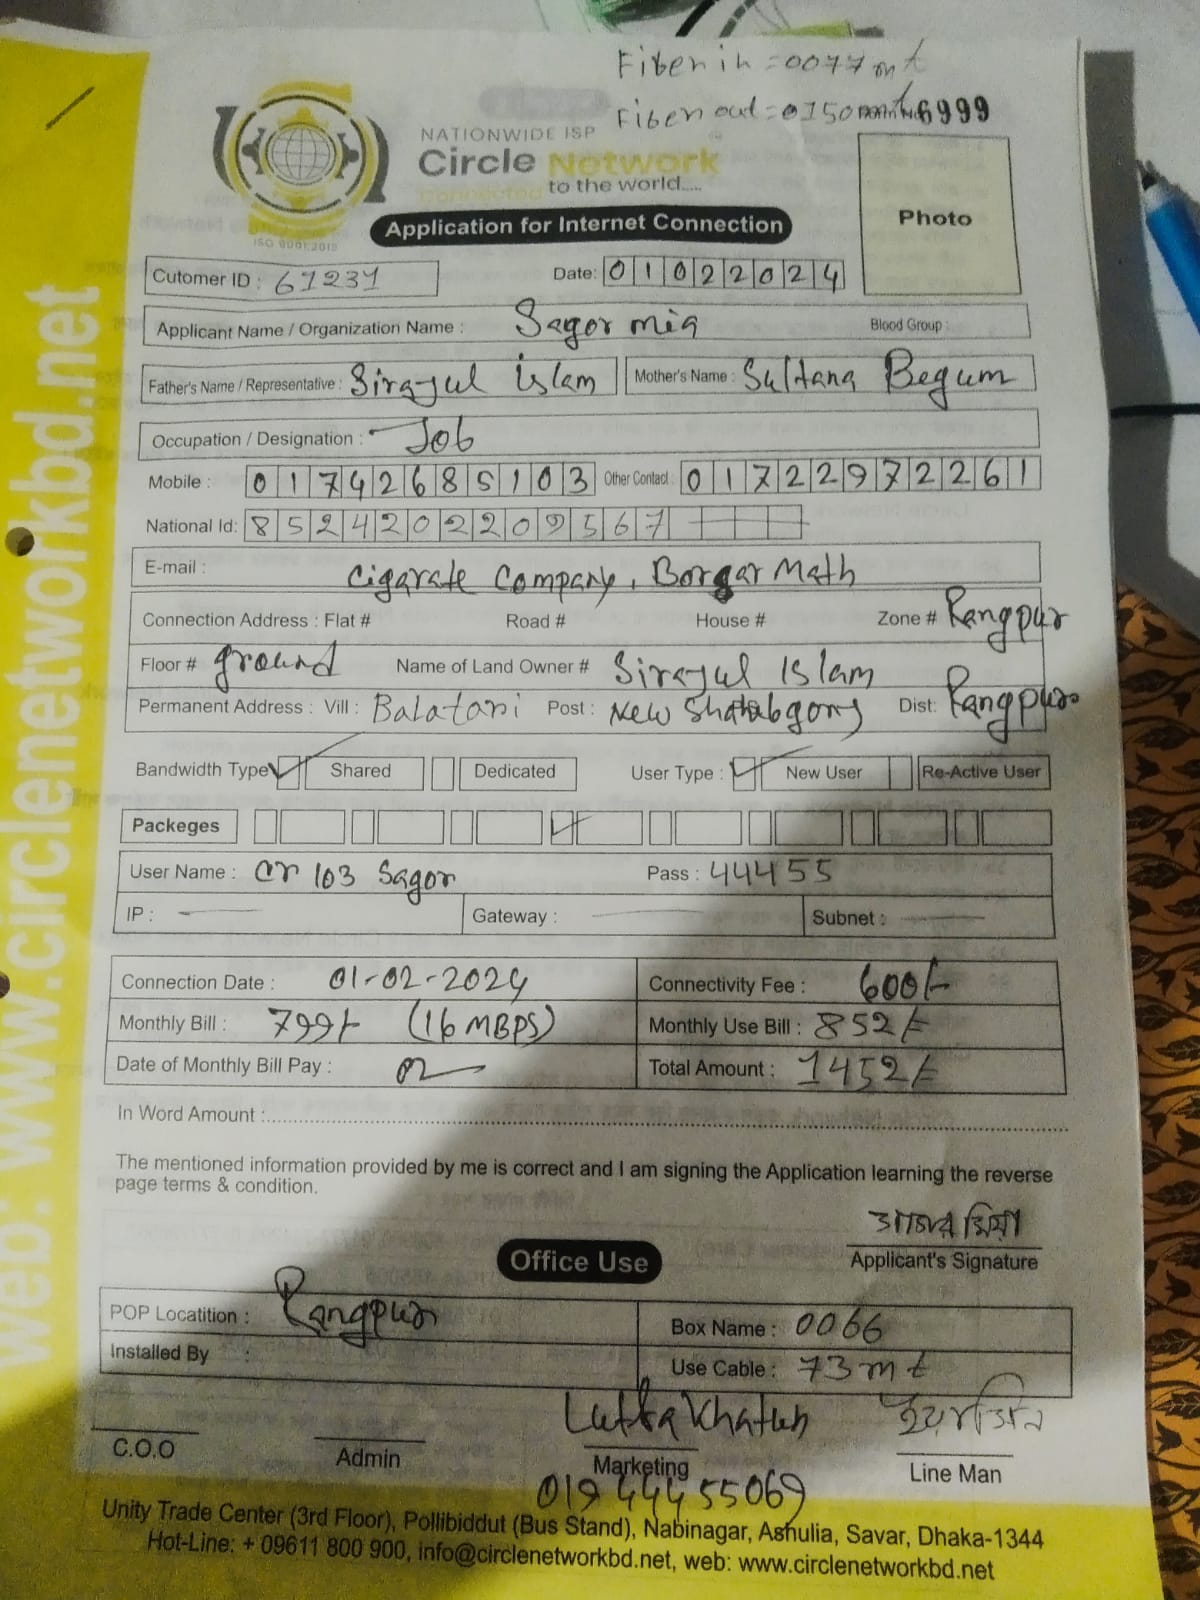 Fiber in = 0077 mt
Fiber out = 0150 mt
6999
NATIONWIDE ISP
Circle Network
Connected to the world.....
ISO 9001:2015
Application for Internet Connection
Photo
Cutomer ID : 61231
Date: 01022024
Applicant Name / Organization Name : Sagor mia
Blood Group :
Father's Name / Representative : Sirajul islam
Mother's Name : Sultana Begum
Occupation / Designation : Job
Mobile : 01742685103 Other Contact : 01722972261
National Id: 8524202209567
E-mail :
Cigarate Company, Borgar Math
Connection Address : Flat # Road # House # Zone # Rangpur
Floor # ground Name of Land Owner # Sirajul Islam
Permanent Address : Vill : Balatari Post : New Dist: Rangpur
Bandwidth Type Shared Dedicated User Type : New User Re-Active User
Packeges
User Name : cn 103 Sagor Pass : 44455
IP : — Gateway : — Subnet : —
Connection Date : 01-02-2024 Connectivity Fee : 600/-
Monthly Bill : 799/- (16 MBPS) Monthly Use Bill : 852/-
Date of Monthly Bill Pay : 02 Total Amount : 1452/-
In Word Amount :
The mentioned information provided by me is correct and I am signing the Application learning the reverse
page terms & condition.
মিয়া
Applicant's Signature
Office Use
POP Locatition : Rangpur Box Name : 0066
Installed By : Use Cable : 73 mt
Lutfa Khatun
C.O.O Admin Marketing Line Man
01944455069
Unity Trade Center (3rd Floor), Pollibiddut (Bus Stand), Nabinagar, Ashulia, Savar, Dhaka-1344
Hot-Line: + 09611 800 900, info@circlenetworkbd.net, web: www.circlenetworkbd.net
web: www.circlenetworkbd.net